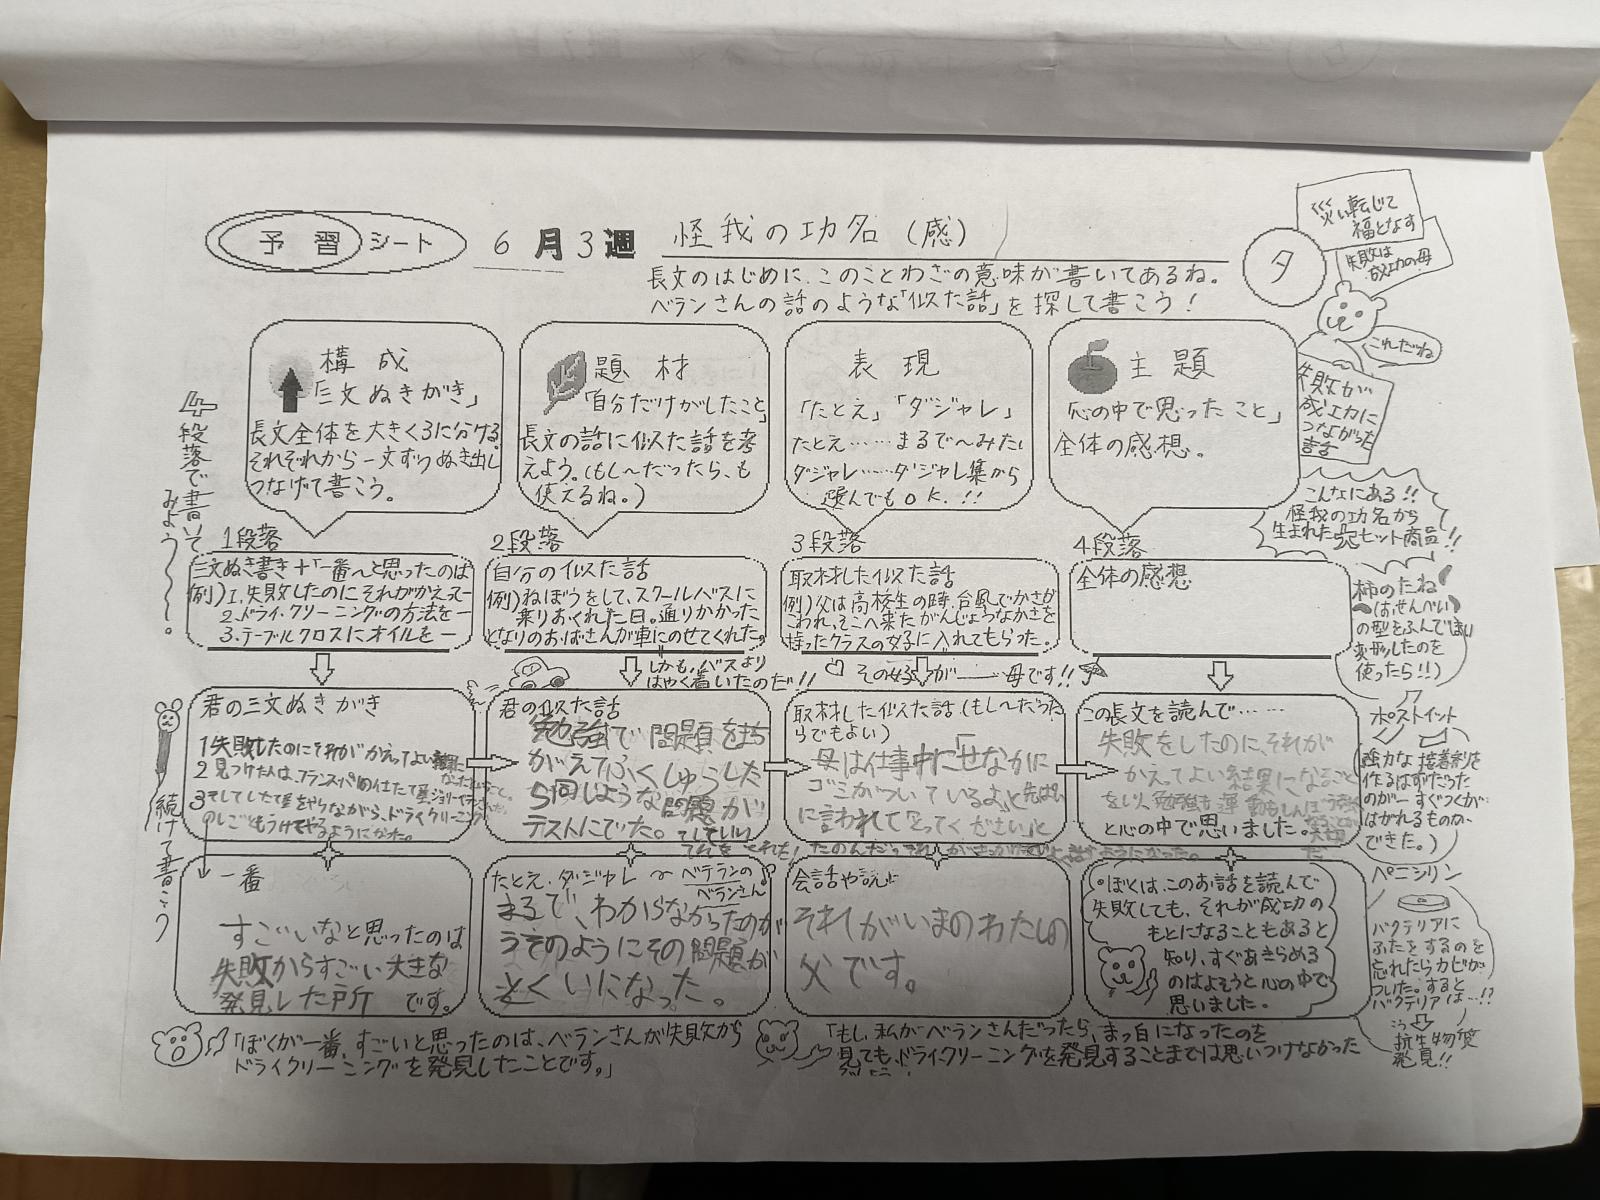 予習シート 6月3週 怪我の功名(感)
長文のはじめに、このことわざの意味が書いてあるね。
ベランさんの話のような「似た話」を探して書こう!
タ
災い転じて
福となす
失敗は
成功の母
これだね
失敗が
成功に
つながった
話
4段落で書いて
みよう〜〜。
構成
「三文ぬきがき」
長文全体を大きく3に分ける。
それぞれから一文ずつぬき出し
つなげて書こう。
題材
「自分だけがしたこと」
長文の話に似た話を考
えよう。(もし〜だったら、も
使えるね。)
表現
「たとえ」「ダジャレ」
たとえ……まるで〜みたい
ダジャレ……ダジャレ集から
選んでもOK.!!
主題
「心の中で思ったこと」
全体の感想。
こんなにある!!
怪我の功名から
生まれた大ヒット商品!!
1段落
三文ぬき書き+「一番〜と思ったのは
例)1.失敗したのにそれがかえって
2.ドライ.クリーニングの方法を一
3.テーブルクロスにオイルを一
2段落
自分の似た話
例)ねぼうをして、スクールバスに
乗りおくれた日。通りかかった
となりのおばさんが車にのせてくれた。
しかも、バスより
はやく着いたのだ!!
3段落
取材した似た話
例)父は高校生の時、台風でかさが
こわれ、そこへ来たがんじょうなかさを
持ったクラスの女子に入れてもらった。
その女子が――母です!!
4段落
全体の感想
柿のたね
(はせんべい
の型をふんで
変形したのを
使ったら!!)
続けて書こう
君の三文ぬきがき
1失敗したのにそれがかえってよい結果に
2見つけた人は、フランスの仕立て屋ジョリーベラン
3そしてしたて屋をやりながら、ドライクリーニング
のしごともうけてやるようになった。
君の似た話
勉強で問題をまち
がえてふくしゅうした
5回しような問題が
テストにでた。
取材した似た話(もし〜だった
らでもよい)
母は仕事中に「せなかに
ゴミがついているよ」と先ぱい
に言われて「とってください」と
この長文を読んで……
失敗をしたのに、それが
かえってよい結果になること
と心の中で思いました。
ポストイット
強力な接着剤を
作るはずだった
のが一すぐつくが
はがれるものが、
できた。)
一番
すごいなと思ったのは
失敗からすごい大きな
発見した所 です。
たとえ.ダジャレ〜ベテランの
ベランさん
まるで、わからなかったのが
うそのようにその問題が
とくいになった。
会話や説
それがいまのわたしの
父です。
ぼくは、このお話を読んで
失敗しても、それが成功の
もとになることもあると
知り、すぐあきらめる
のはよそうと心の中で
思いました。
ペニシリン
バクテリアに
ふたをするのを
忘れたらカビが
ついた。すると
バクテリアは…!?
こう
抗生物質
発見!!
「ぼくが一番、すごいと思ったのは、ベランさんが失敗から
ドライクリーニングを発見したことです。」
「もし、私がベランさんだったら、まっ白になったのを
見ても、ドライクリーニングを発見することまでは思いつけなかった